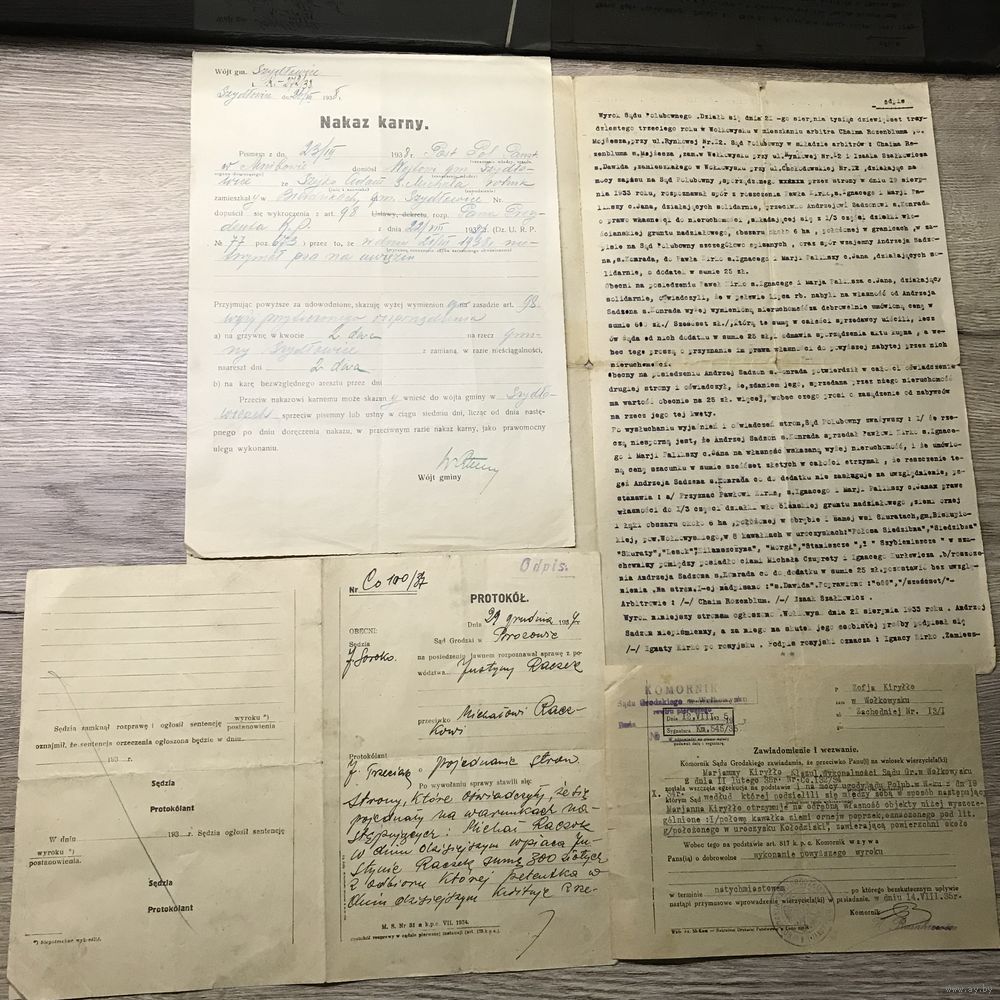 Wójt gm. Szydłowice
Szydłowice dn. 193 r.
Nakaz karny.
Pismem z dn. 23/III 1938 r. Post. Pol. Państ.
doniósł Wójtowi gm. Szydło-
wice że Szejko Adam s. Michała rolnik
zamieszkały w gm. Szydłowice Nr.
dopuścił się wykroczenia z art. 98 Ustawy, dekretu, rozp. Pana Prezy-
denta R.P. z dnia 22/VIII 193 r. (Dz. U. R. P.
№ 77 poz. 673) przez to, że w dniu 1938 r. nie
trzymał psa na uwięzi
Przyjmując powyższe za udowodnione, skazuję wyżej wymienionego na zasadzie art. 98
wyżej przytoczonego rozporządzenia
a) na grzywnę w kwocie 2 dwa na rzecz gmi-
ny Szydłowice z zamianą, w razie nieściągalności,
na areszt dni 2 dwa
b) na karę bezwzględnego aresztu przez dni
Przeciw nakazowi karnemu może skazany wnieść do wójta gminy w Szydło-
wicach sprzeciw pisemny lub ustny w ciągu siedmiu dni, licząc od dnia nastę-
pnego po dniu doręczenia nakazu, w przeciwnym razie nakaz karny, jako prawomocny
ulegu wykonaniu.
Wójt gminy
odpis
Wyrok Sądu Polubownego. Działo się dnia 21-go sierpnia tysiąc dziewięćset trzy-
dziestego trzeciego roku w Wołkowysku w mieszkaniu arbitra Chaima Rozenbluma s.
Mojżesza, przy ul. Rynkowej Nr. 12. Sąd Polubowny w składzie arbitrów: Chaima Ro-
zenbluma s. Mojżesza, zam. w Wołkowysku przy ul. Rynkowej Nr. 12 i Izaaka Szałkowicza
s. Dawida, zamieszkałego w Wołkowysku przy ul. Nr. 12, działając na
mocy zapisu na Sąd Polubowny, sporządz. przez strony w dniu 19 sierp-
nia 1933 roku, rozpoznawał spór z powództwa Pawła Kirko, s. Ignacego i Marji Pa-
likszy c. Jana, działających solidarnie, przeciwko Andrzejowi Sadzonowi s. Konrada
o prawo własności do nieruchomości, składającej się z 1/3 części działki wło-
ściańskiej gruntu nadziałowego, obszaru około 6 ha, położonej w granicach, w za-
pisie na Sąd Polubowny szczegółowo opisanych, oraz spór wzajemny Andrzeja Sadzo-
na, s. Konrada, do Pawła Kirko s. Ignacego i Marji Paliksza c. Jana, działających so-
lidarnie, o dodatek w sumie 25 zł.
Obecni na posiedzeniu Paweł Kirko s. Ignacego i Marja Paliksza c. Jana, działając
solidarnie, oświadczyli, że w połowie lipca rb. nabyli na własność od Andrzeja
Sadzona s. Konrada wyżej wymienioną nieruchomość za dobrowolnie umówioną cenę w
sumie 600 zł./ Sześćset zł./, którą to sumę w całości sprzedawcy uiścili, lecz
ów żąda od nich dodatku w sumie 25 zł, i odmawia sporządzenia aktu kupna, a wo-
bec tego proszą o przyznanie im prawa własności do powyższej nabytej przez nich
nieruchomości.
Obecny na posiedzeniu Andrzej Sadzon s. Konrada potwierdził w całości oświadczenie
drugiej strony i oświadczył, że, zdaniem jego, sprzedana przez niego nieruchomość
ma wartość obecnie na 25 zł. więcej, wobec czego prosi o zasądzenie od nabywców
na rzecz jego tej kwoty.
Po wysłuchaniu wyjaśnień i oświadczeń stron, Sąd Polubowny zważywszy: 1/ że rze-
czą niesporną jest, że Andrzej Sadzon s. Konrada sprzedał Pawłowi Kirko s. Ignace-
go i Marji Paliksy c. Jana na własność wskazaną wyżej nieruchomość, i że umówio-
ną cenę szacunku w sumie sześćset złotych w całości otrzymał, że roszczenie te-
goż Andrzeja Sadzona s. Konrada co do dodatku nie zasługuje na uwzględnienie, po-
stanawia: a/ Przyznać Pawłowi Kirko, s. Ignacego i Marji Palikszy c. Jana prawo
własności do 1/3 części działki włościańskiej gruntu nadziałowego, ziemi ornej
i łąki obszaru około 6 ha, położonej w obrębie b. samej wsi Skuratach, gm. Biskupic-
kiej, pow. Wołkowyskiego, w 8 kawałkach w uroczyskach: "Połosa Siedzibna", "Siedziba"
"Skuraty", "Lesok", "Morgi", "Staniszcze", i "Szybieniszcze" w sza-
chownicy pomiędzy posiadło ciami Michała Czupręty i Ignacego Kurłowicza. b/roszcze-
nia Andrzeja Sadzona s. Konrada co do dodatku w sumie 25 zł. pozostawić bez uwzglę-
nienia. Na stron. 1-ej nadpisano: "s. Dawida". Poprawiono: "600", "/sześćset/"-
Arbitrowie: /-/ Chaim Rozenblum. /-/ Izaak Szałkowicz.
Wyrok niniejszy stronom ogłoszono. Wołkowysk dnia 21 sierpnia 1933 roku. Andrzej
Sadzon niepiśmienny, a za niego na skutek jego osobistej prośby podpisał się
/-/ Ignaty Kirko po rosyjsku. Podpis rosyjski oznacza: Ignacy Kirko. Zamiesz-
Sędzia zamknął rozprawę i ogłosił sentencję wyroku *)
postanowienia
oznajmił, że sentencja orzeczenia ogłoszona będzie w dniu
193 r.
Sędzia
Protokólant
W dniu 193 r. Sędzia ogłosił sentencję
wyroku *)
postanowienia.
Sędzia
Protokólant
*) Niepotrzebne wykreślić.
Odpis.
Nr. Co 100/37
PROTOKÓŁ.
Dnia 29 grudnia 1937 r.
OBECNI:
Sędzia
J. Soroko.
Sąd Grodzki w Prozowie
na posiedzeniu jawnem rozpoznawał sprawę z po-
wództwa Justyny Raczek
przeciwko Michałowi Racz-
kowi
Protokólant
J. Trzeciak
o pojednanie stron
Po wywołaniu sprawy stawili się:
Strony, które oświadczyły, że się
pojednały na warunkach na-
stępujących: Michał Raczek
w dniu dzisiejszym wpłaca Ju-
stynie Raczek sumę 300 złotych
z odbioru której petentka w
dniu dzisiejszym kwituje prze-
M. S. Nr 31 a k.p.c. VII. 1934.
(protokół rozprawy w sądzie pierwszej instancji (art. 173 k.p.c.).
KOMORNIK
Sądu Grodzkiego w Wołkowysku
Dnia 12.VIII 193
Sygnatura Km. 545/35
P Zofja Kiryłło
zam w Wołkowysku
ul Zachodniej Nr. 13/1
Zawiadomienie i wezwanie.
Komornik Sądu Grodzkiego zawiadamia, że przeciwko Panu(i) na wniosek wierzyciela(ki)
Marjanny Kiryłło Klauzul. wykonalności Sądu Gr. w Wołkowysku
z dnia 11 lutego 35r. Nr. Co. 132/34
została wszczęta egzekucja na podstawie i na mocy ugody Sądu Polub. w W-sku z dn 19
którym Sąd według której podzielili się między sobą w sposób następujący
Marjanna Kiryłło otrzymuje na odrębną własność objekty niżej wyszcze-
gólnione: 1/połowę kawałka ziemi ornej poprzek, oznaczonego pod lit.
g/położonego w uroczysku Kołodziski, zawierającą powierzchni około
Wobec tego na podstawie art. 817 k. p. c. Komornik wzywa
Pana(ią) o dobrowolne wykonanie powyższego wyroku
w terminie natychmiastowem po którego bezskutecznym upływie
nastąpi przymusowe wprowadzenie wierzyciela(ki) w posiadanie. w dniu 14.VIII.35r.
Komornik
www.ay.by